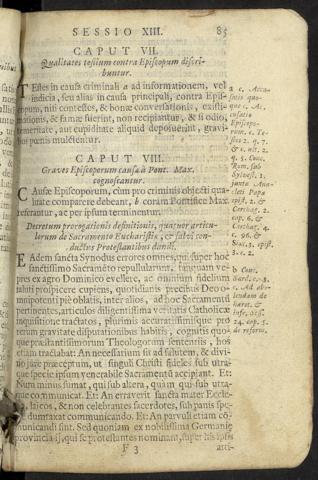 SESSIO XIII. 85
CAPUT VII.
Qualitates testium contra Episcopum describuntur.
TEstes in causa criminali a ad informationem, vel
indicia, seu alias in causa principali, contra Epis-
copum, nisi contestes, & bonæ conversationis, existi-
mationis, & famæ fuerint, non recipiantur, & si odio,
temeritate, aut cupiditate aliquid deposuerint, gravi-
bus pœnis mulctentur.
CAPUT VIII.
Graves Episcoporum causæ à Pont. Max.
cognoscantur.
CAusæ Episcoporum, cùm pro criminis objecti qua-
litate comparere debeant, b coram Pontifice Max.
referantur, ac per ipsum terminentur.
Decretum prorogationis definitionis, quatuor articu-
lorum de Sacramento Eucharistiæ, & salvi con-
ductus Protestantibus dandi.
EAdem sancta Synodus errores omnes, qui super hoc
sanctissimo Sacraméto repullularunt, tanquam ve-
pres ex agro Dominico evellere, ac omnium fidelium
saluti prospicere cupiens, quotidianis precibus Deo o-
mnipotenti piè oblatis, inter alios, ad hoc Sacramentū
pertinentes, articulos diligentissima veritatis Catholicæ
inquisitione tractatos, plurimis accuratissimisque pro
rerum gravitate disputationibus habitis, cognitis quo-
que præstantissimorum Theologorum sententiis, hos
etiam tractabat: An necessarium sit ad salutem, & divi-
no jure præceptum, ut singuli Christi fideles sub utra-
que specie ipsum venerabile Sacramentū accipiant. Et:
Num minus sumat, qui sub altera, quàm qui sub utra-
que communicat. Et: An erraverit sancta mater Eccle-
sia, laicos, & non celebrantes sacerdotes, sub panis spe-
cie dumtaxat communicando. Et: An parvuli etiam cō-
municandi sint. Sed quoniam ex nobilissima Germaniæ
provincia ij, qui se protestantes nominant, super his ipsis
F 3 arti-
a c.
c. Ac-
cusatio
Episco-
rum. c. Te-
stes 2. q. 7.
& c. ult. 2.
q. 5. Conc.
Rom. sub
Sylvest. 1.